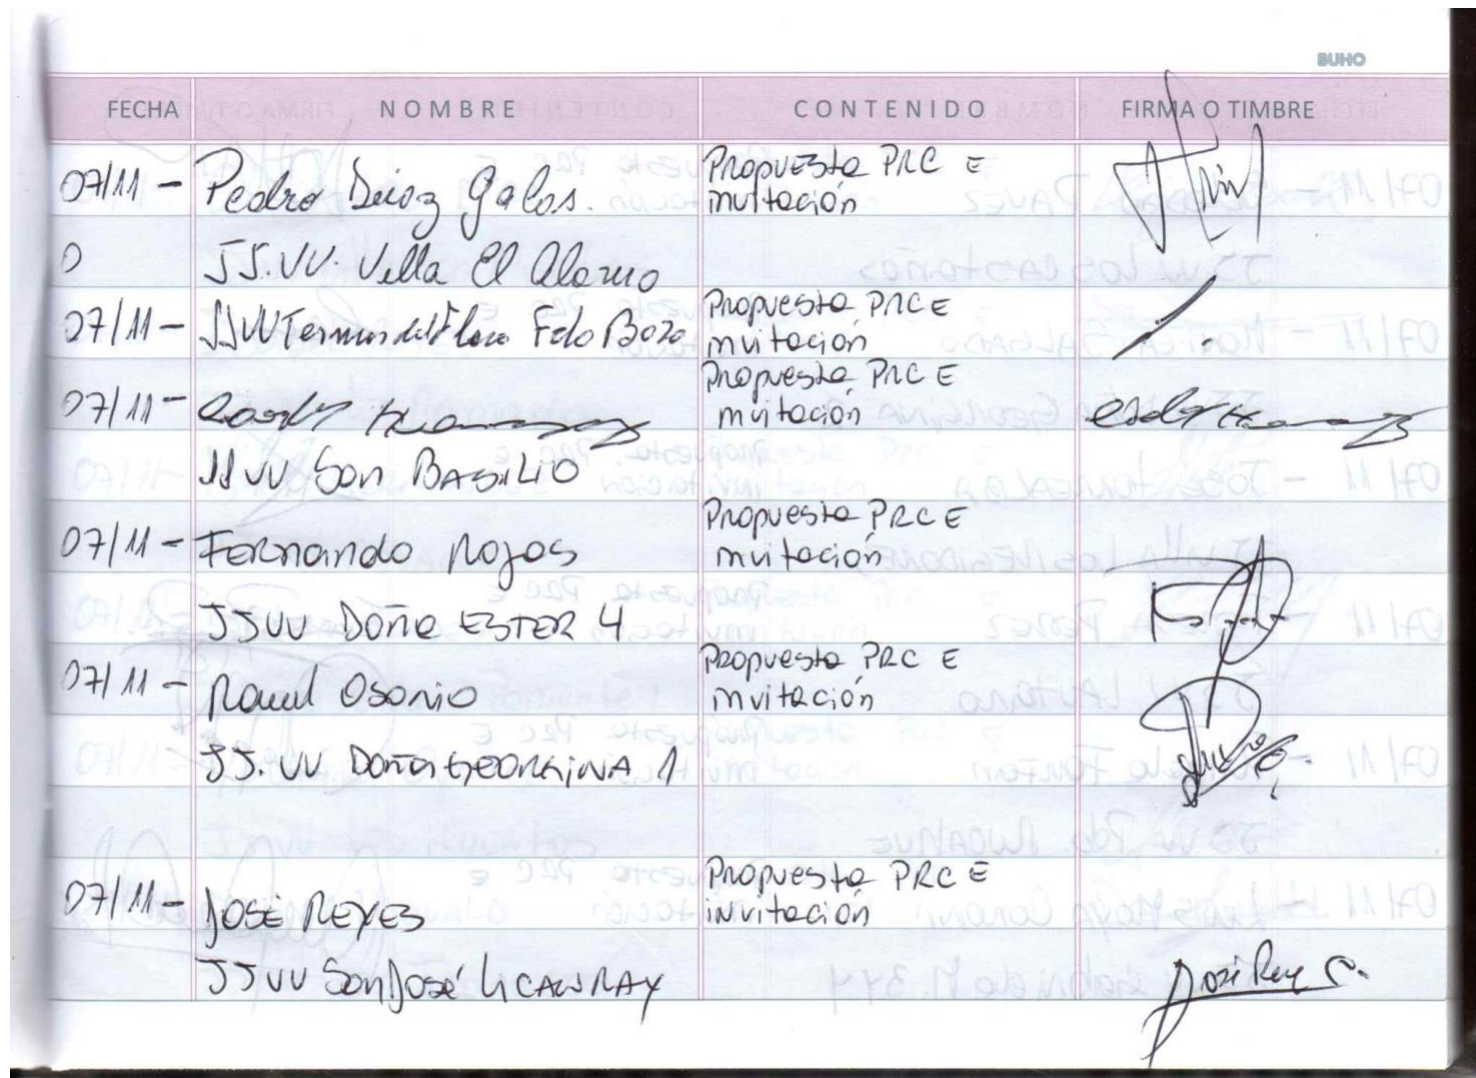 BUHO
FECHA NOMBRE CONTENIDO FIRMA O TIMBRE
07/11 - Pedro Deioz Galos. Propuesta PRC E
invitación
0 JJ.VV. Villa El Alamo
07/11 - JJVV Termas del Flaco Fdo Bozo Propuesta PRC E
invitación
07/11 - Propuesta PRC E
invitación
JJVV San BASILIO
07/11 - Fernando Rojas Propuesta PRC E
invitación
JJVV DOÑA ESTER 4
07/11 - Raul Osorio Propuesta PRC E
invitación
JJ.VV DOÑA GEORGINA 1
07/11 - JOSÉ REYES Propuesta PRC E
invitación
JJVV San José LICANRAY
José Rey C.